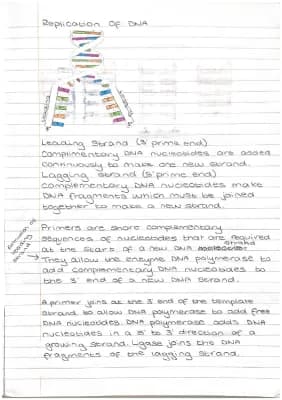 Replication OF DNA
Leading
Lagging
Leading Strand (3 prime end)
Complimentary DNA nucleotides are added
continuously to make one new strand.
Lagging strand (5 prime end)
Complementary DNA nucleotides make
DNA fragments which must be joined
together to make a new strand.
Primers are short complementary
sequences of nucleotides that are required
at the start of a new DNA strand
They allow the enzyme DNA polymerase to
add complementary DNA nucleotides to
the 3' end of a new DNA strand.
A primer joins at the 3' end of the template
strand to allow DNA polymerase to add free
DNA nucleotides. DNA polymerase adds DNA
nucleotides in a 5' to 3' direction of a
growing strand. Ligase joins the DNA
fragments of the lagging strand.